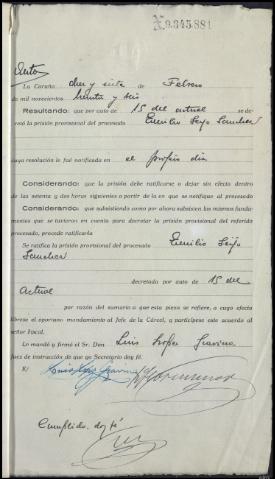 N.9.345.881
Auto
La Coruña diez y siete de Febrero
de mil novecientos treinta y seis
Resultando: que por auto de 15 del actual se de-
cretó la prisión provisional del procesado Emilio Seijo Sanchez
cuya resolución le fué notificada en el propio dia
Considerando: que la prisión debe ratificarse o dejar sin efecto dentro
de las setenta y dos horas siguientes a partir de la en que se notifique al procesado
Considerando: que subsistiendo como por ahora subsisten los mismos funda-
mentos que se tuvieron en cuenta para decretar la prisión provisional del referido
procesado, procede ratificarla
Se ratifica la prisión provisional del procesado Emilio Seijo
Sanchez
decretada por auto de 15 del
actual
por razón del sumario a que esta pieza se refiere, a cuyo efecto
líbrese el oportuno mandamiento al Jefe de la Cárcel, y participese este acuerdo al
señor Fiscal.
Lo mandó y firmó el Sr. Don Luis López Gravina
Juez de instrucción de que yo Secretario doy fé.
E/
Cumplido. doy fé